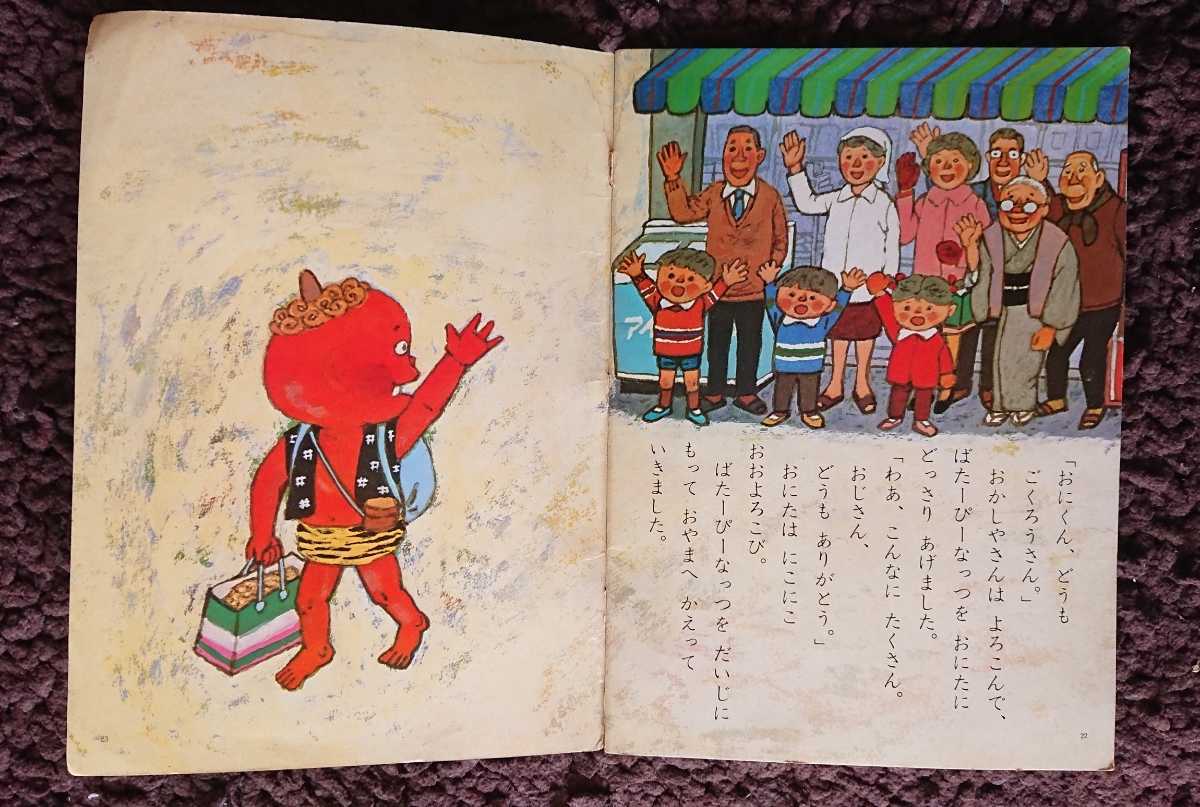 「おにくん、どうも
ごくろうさん。」
おかしやさんは よろこんで、
ばたーぴーなっつを おにたに
どっさり あげました。
「わあ、こんなに たくさん。
おじさん、
どうも ありがとう。」
おにたは にこにこ
おおよろこび。
ばたーぴーなっつを だいじに
もって おやまへ かえって
いきました。
アイ
22
23